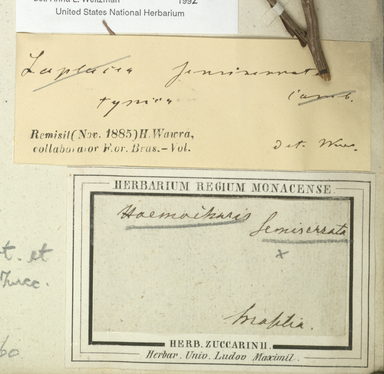 det Anna L. Weitzman 1992
United States National Herbarium
Laplacea semiserrata
typica Camb.
Remisit (Nov. 1885) H. Wawra,
collaborator Flor. Bras.-Vol.
det. Wwr.
HERBARIUM REGIUM MONACENSE
Haemocharis
semiserrata
x
t. et
Zucc.
Martia.
60
HERB. ZUCCARINII.
Herbar. Univ. Ludov Maximil.